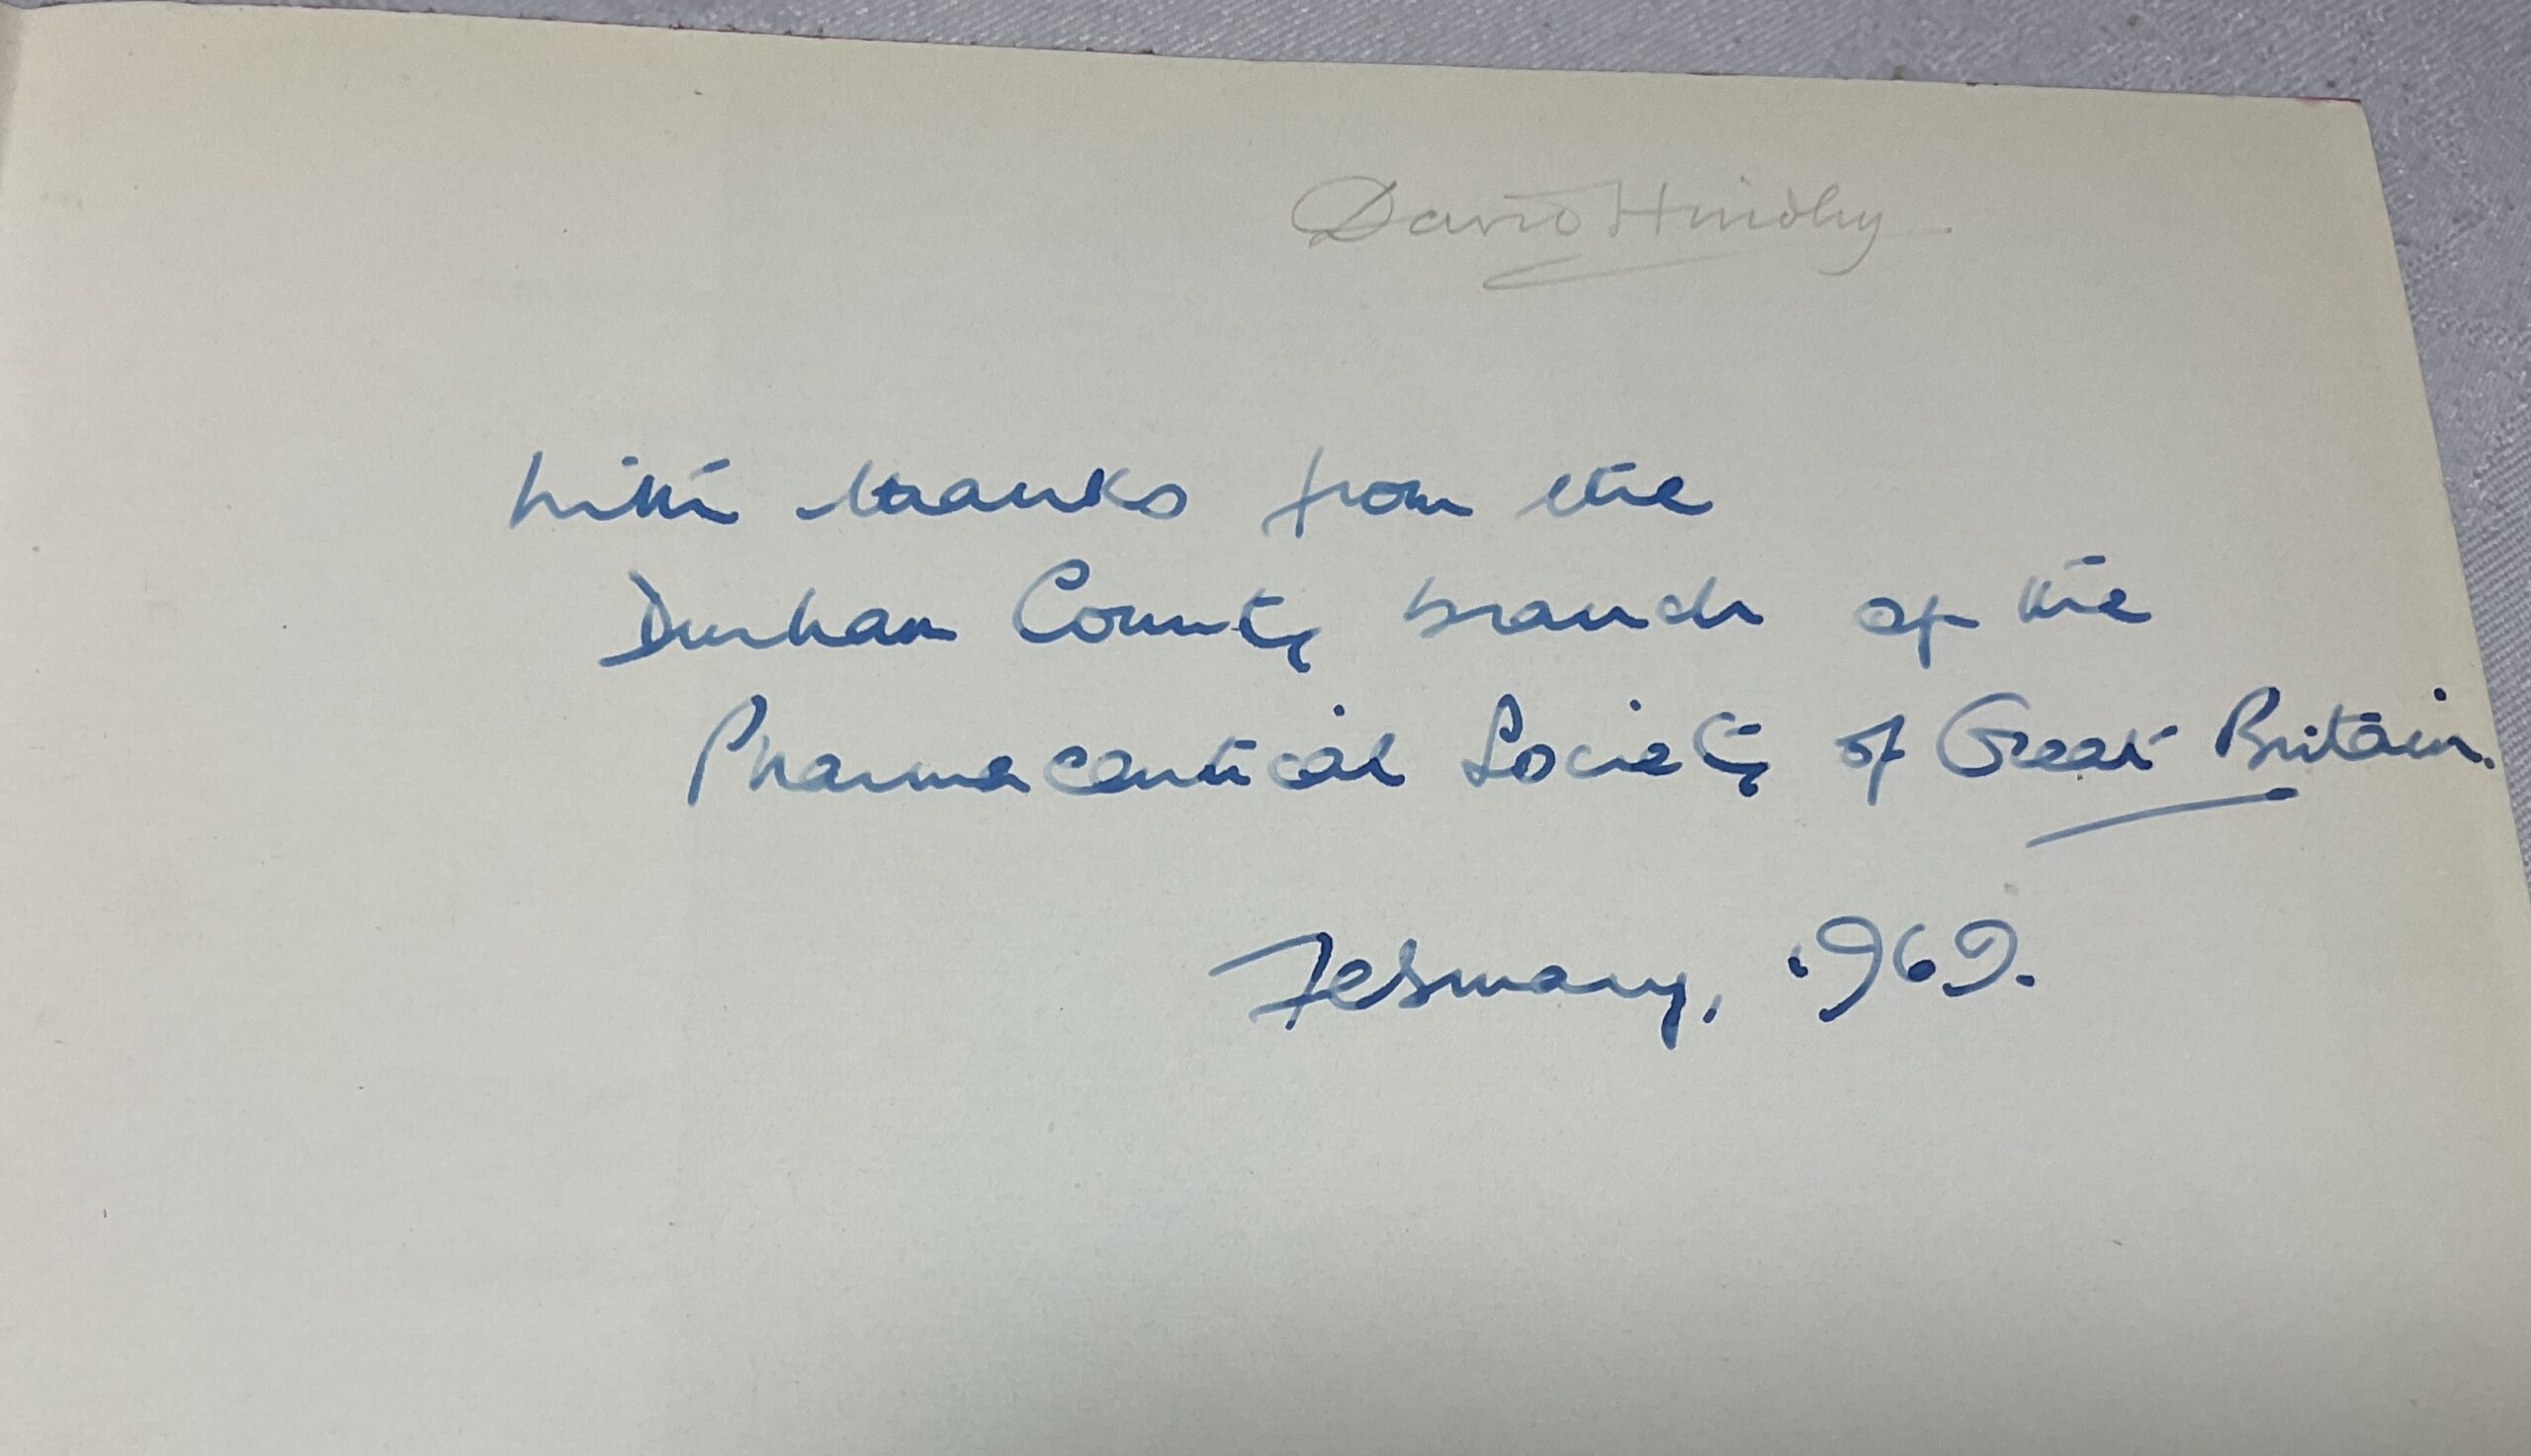 David Hindley
With thanks from the
Durham County branch of the
Pharmaceutical Society of Great Britain.
February, 1969.